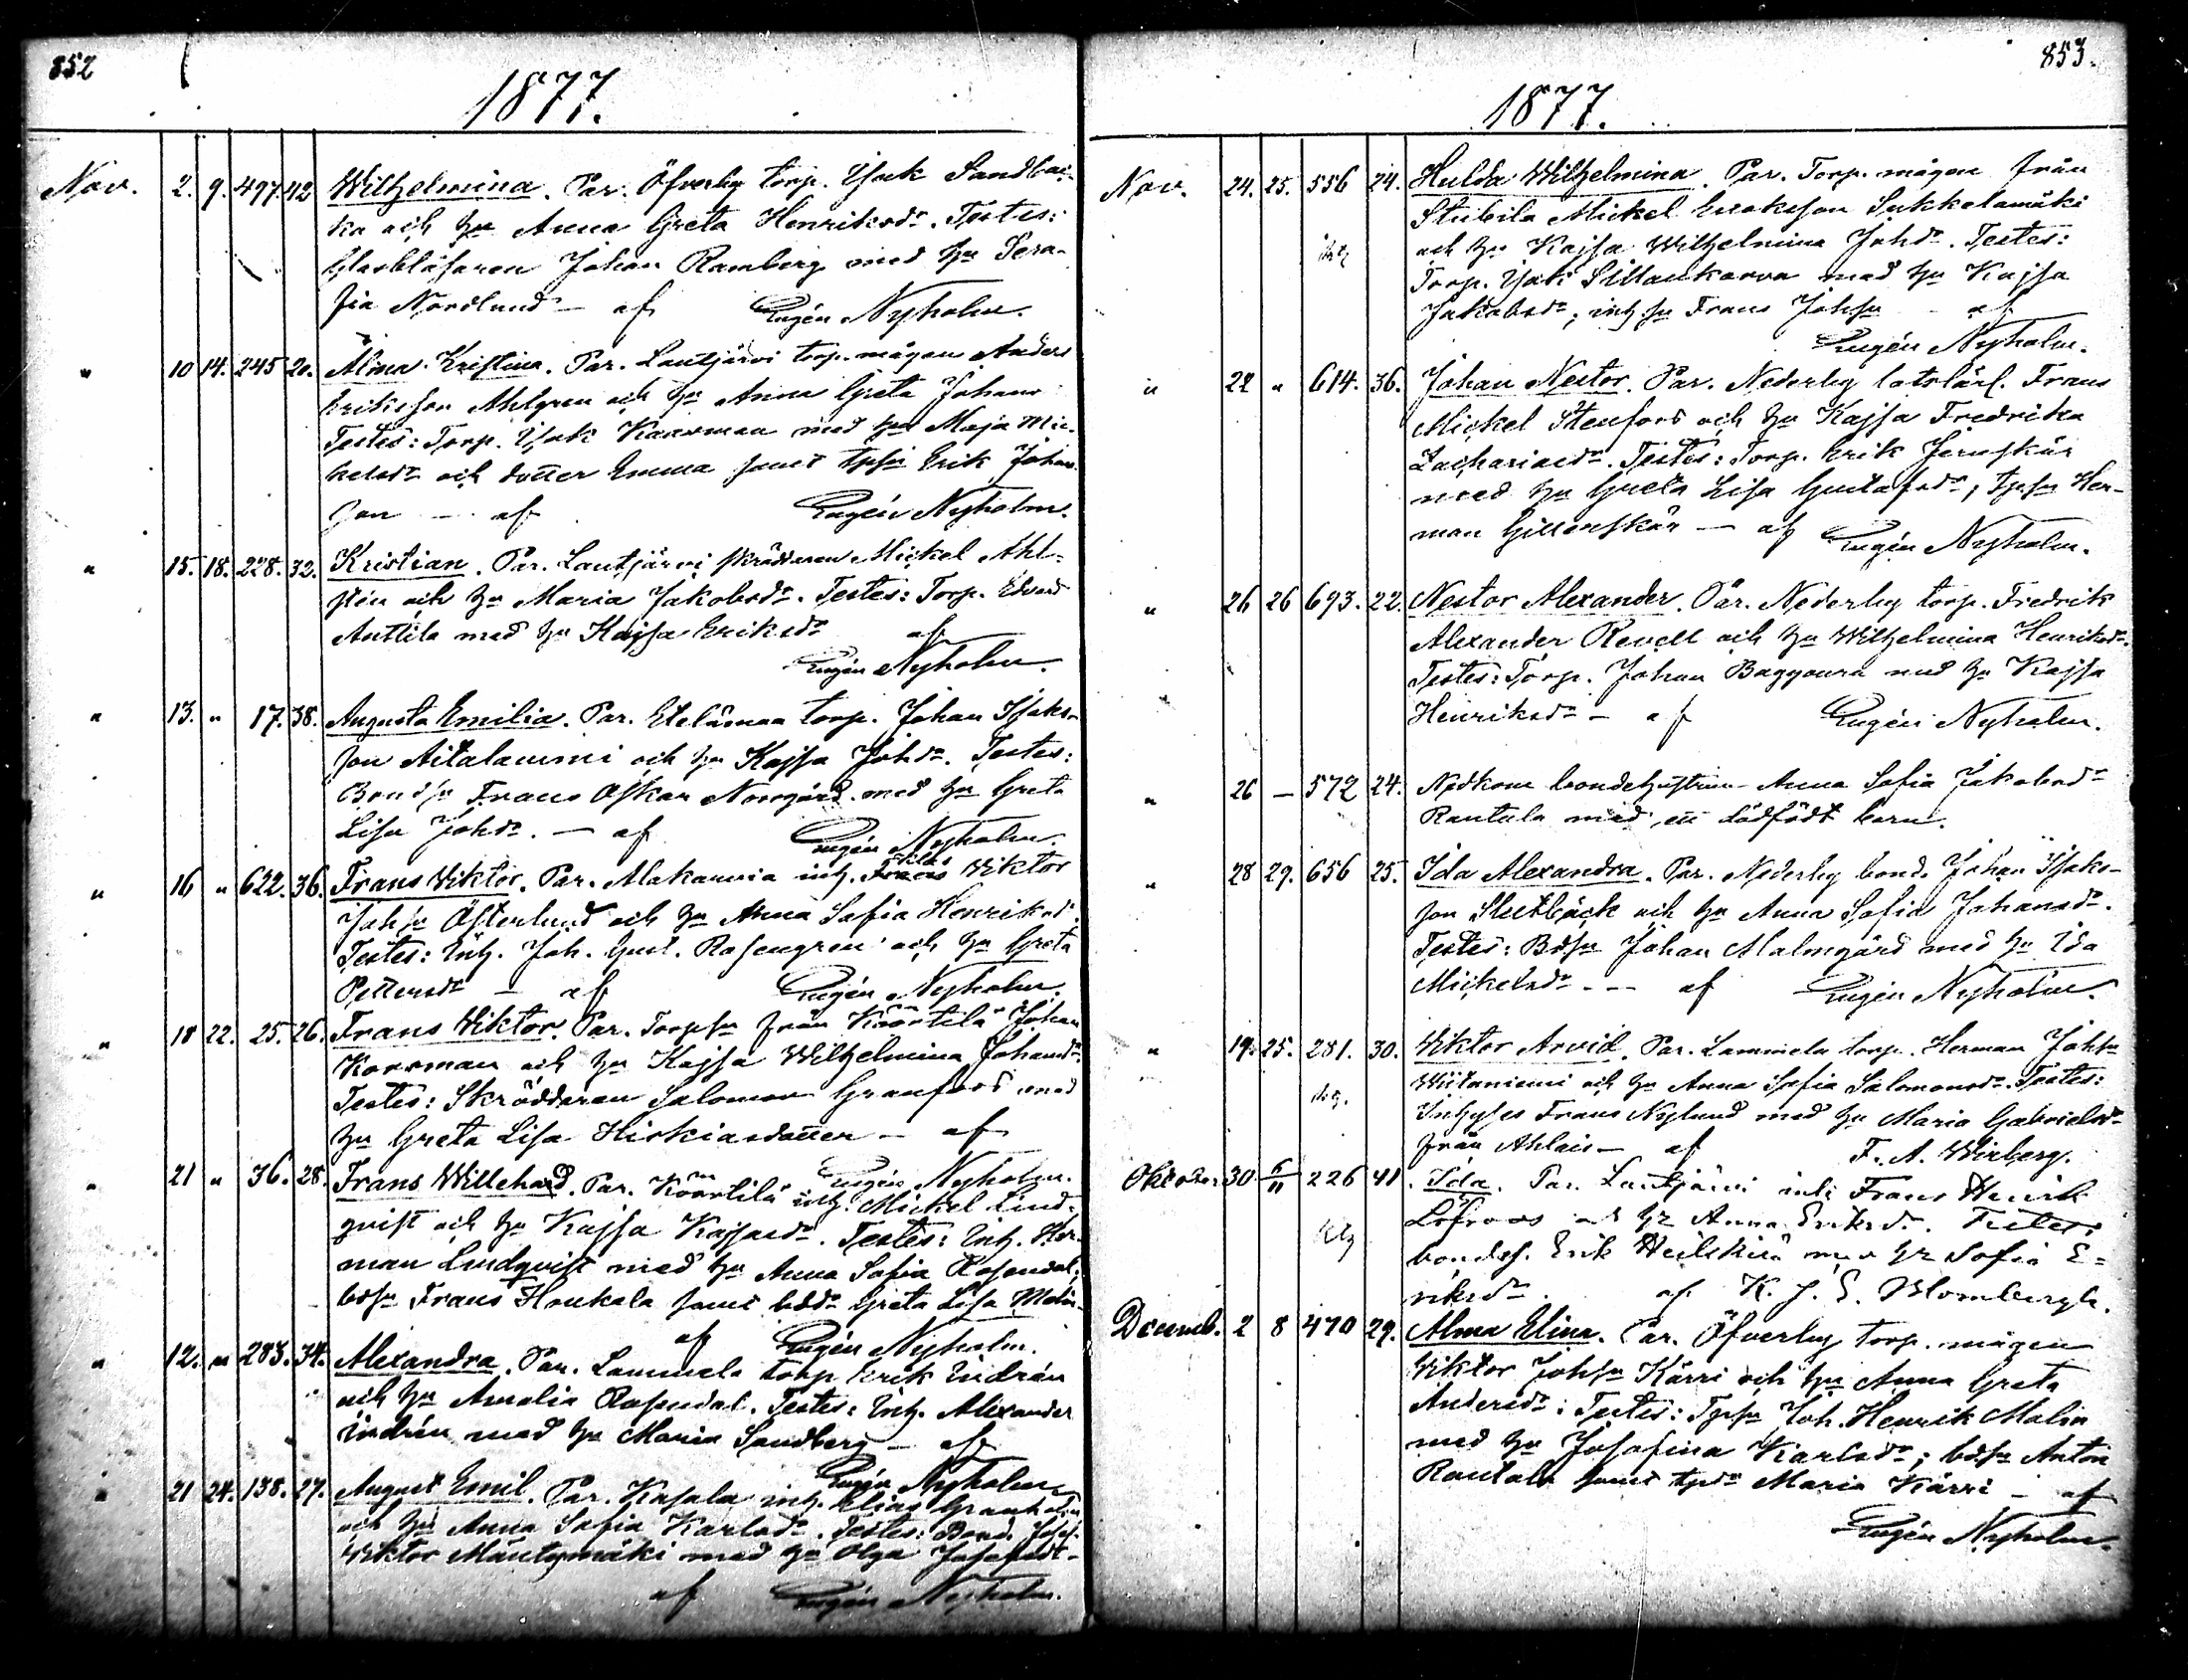 852
1877.
Nov. 2. 9. 497. 42 Wilhelmina. Par. Öfverby torp. Isak Sandbac-
ka och hu Anna Greta Henriksdr. Testes:
Glasblåsaren Johan Ramberg med hu Sera-
fia Nordlund — af Eugén Nyholm.
" 10 14. 245 20. Alma Kristina. Par. Lautjärvi torp. mågen Anders
Eriksson Ahlgren och hu Anna Greta Johans
Testes: Torp. Isak Kaarman med hu Maja Mic-
kelsdr och dotter Emma samt tpsn Erik Johans
son — af Eugén Nyholm.
" 15. 18. 228. 32. Kristian. Par. Lautjärvi skräddaren Mickel Ahl-
stén och hu Maria Jakobsdr. Testes: Torp. Edvard
Anttila med hu Kajsa Eriksdr af
Eugén Nyholm.
" 13. " 17. 38. Augusta Emilia. Par. Etelämaa torp. Johan Isaks-
son Aitalammi och hu Kajsa Johdr. Testes:
Bondsn Frans Oskar Norrgård med hu Greta
Lisa Johdr. — af Eugén Nyholm.
" 16 " 622. 36. Frans Viktor. Par. Alakarvia inh. Viktor
Johsn Österlund och hu Anna Sofia Henriksd.
Testes: Inh. Joh. Gust. Rosengren och hu Greta
Pettersdr — af Eugén Nyholm.
" 18 22. 25. 26. Frans Viktor. Par. Torpsn från Käärtilä Johan
Korsman och hu Kajsa Wilhelmina Johansdr.
Testes: Skräddaren Salomon Granfors med
hu Greta Lisa Hiskiasdotter — af
Eugén Nyholm.
" 21 " 36. 28. Frans Willehad. Par. Käärtilä inh. Mickel Lind-
qvist och hu Kajsa Kajsasdr. Testes: Inh. Her-
man Lindqvist med hu Anna Sofia Rosendal;
bdsn Frans Honkala samt bdr Greta Lisa
af Eugén Nyholm.
" 12. " 283. 34. Alexandra. Par. Lammela torp Erik Indrén
och hu Amalia Rosendal. Testes: Inh. Alexander
Indrén med hu Maria Sandberg — af
Eugén Nyholm
" 21 24. 138. 27. August Emil. Par. Kasala inh. Elias Granholm
och hu Anna Sofia Karlsdr. Testes: Bond. Josef
Viktor Mäntymäki med hu Olga Josefsdr -
af Eugén Nyholm.
853.
1877.
Nov. 24. 25. 556 24. Hulda Wilhelmina. Par. Torp. mågen från
Stubila Mickel Eriksson Sukkelamäki
och hu Kajsa Wilhelmina Johdr. Testes:
Torp. Isak Sillankorva med hu Kajsa
Jakobsdr; inh sn Frans Johsn - af
Eugén Nyholm.
" 22 " 614. 36. Johan Nestor. Par. Nederby lotslärl. Frans
Mickel Stenfors och hu Kajsa Fredrika
Zachariasdr. Testes: Torp. Erik Jernskär
med hu Greta Lisa Gustafsdr; tpsn Her-
man Gillerskär — af Eugén Nyholm.
" 26 26 693. 22. Nestor Alexander. Par. Nederby torp. Fredrik
Alexander Revell och hu Wilhelmina Henriksdr.
Testes: Torp. Johan Baggoura med hu Kajsa
Henriksdr — af Eugén Nyholm.
" 26 — 572 24. Nedkom bondehustrun Anna Sofia Jakobsdr
Rantala med ett dödfödt barn.
" 28 29. 656 25. Ida Alexandra. Par. Nederby bond. Johan Isaks-
son Slutbäck och hu Anna Sofia Johansdr.
Testes: Bdsn Johan Malmgård med hu Ida
Mickelsdr. — af Eugén Nyholm.
" 19. 25. 281. 30. Viktor Arvid. Par. Lammela torp. Herman Johsn
Wiitaniemi och hu Anna Sofia Salomonsdr. Testes:
Inhyses Frans Nylund med hu Maria Gabrielsdr
från Ahlais — af F. A. Wirberg.
Oktober 30 6/11 226 41. Ida. Par. Lautjärvi inh. Frans Henrik
Löfroos och hu Anna Eriksdr. Testes:
bondes. Erik Heilskiä med hu Sofia E-
riksdr. af K. J. E. Blombergh.
Decemb. 2 8 470 29. Alma Elina. Par. Öfverby torp. mågen
Viktor Johsn Kärri och hu Anna Greta
Andersdr. Testes: Tpsn Joh. Henrik Malin
med hu Josefina Karlsdr; bdsn Anton
Rantala samt tpdr Maria Kärri — af
Eugén Nyholm.